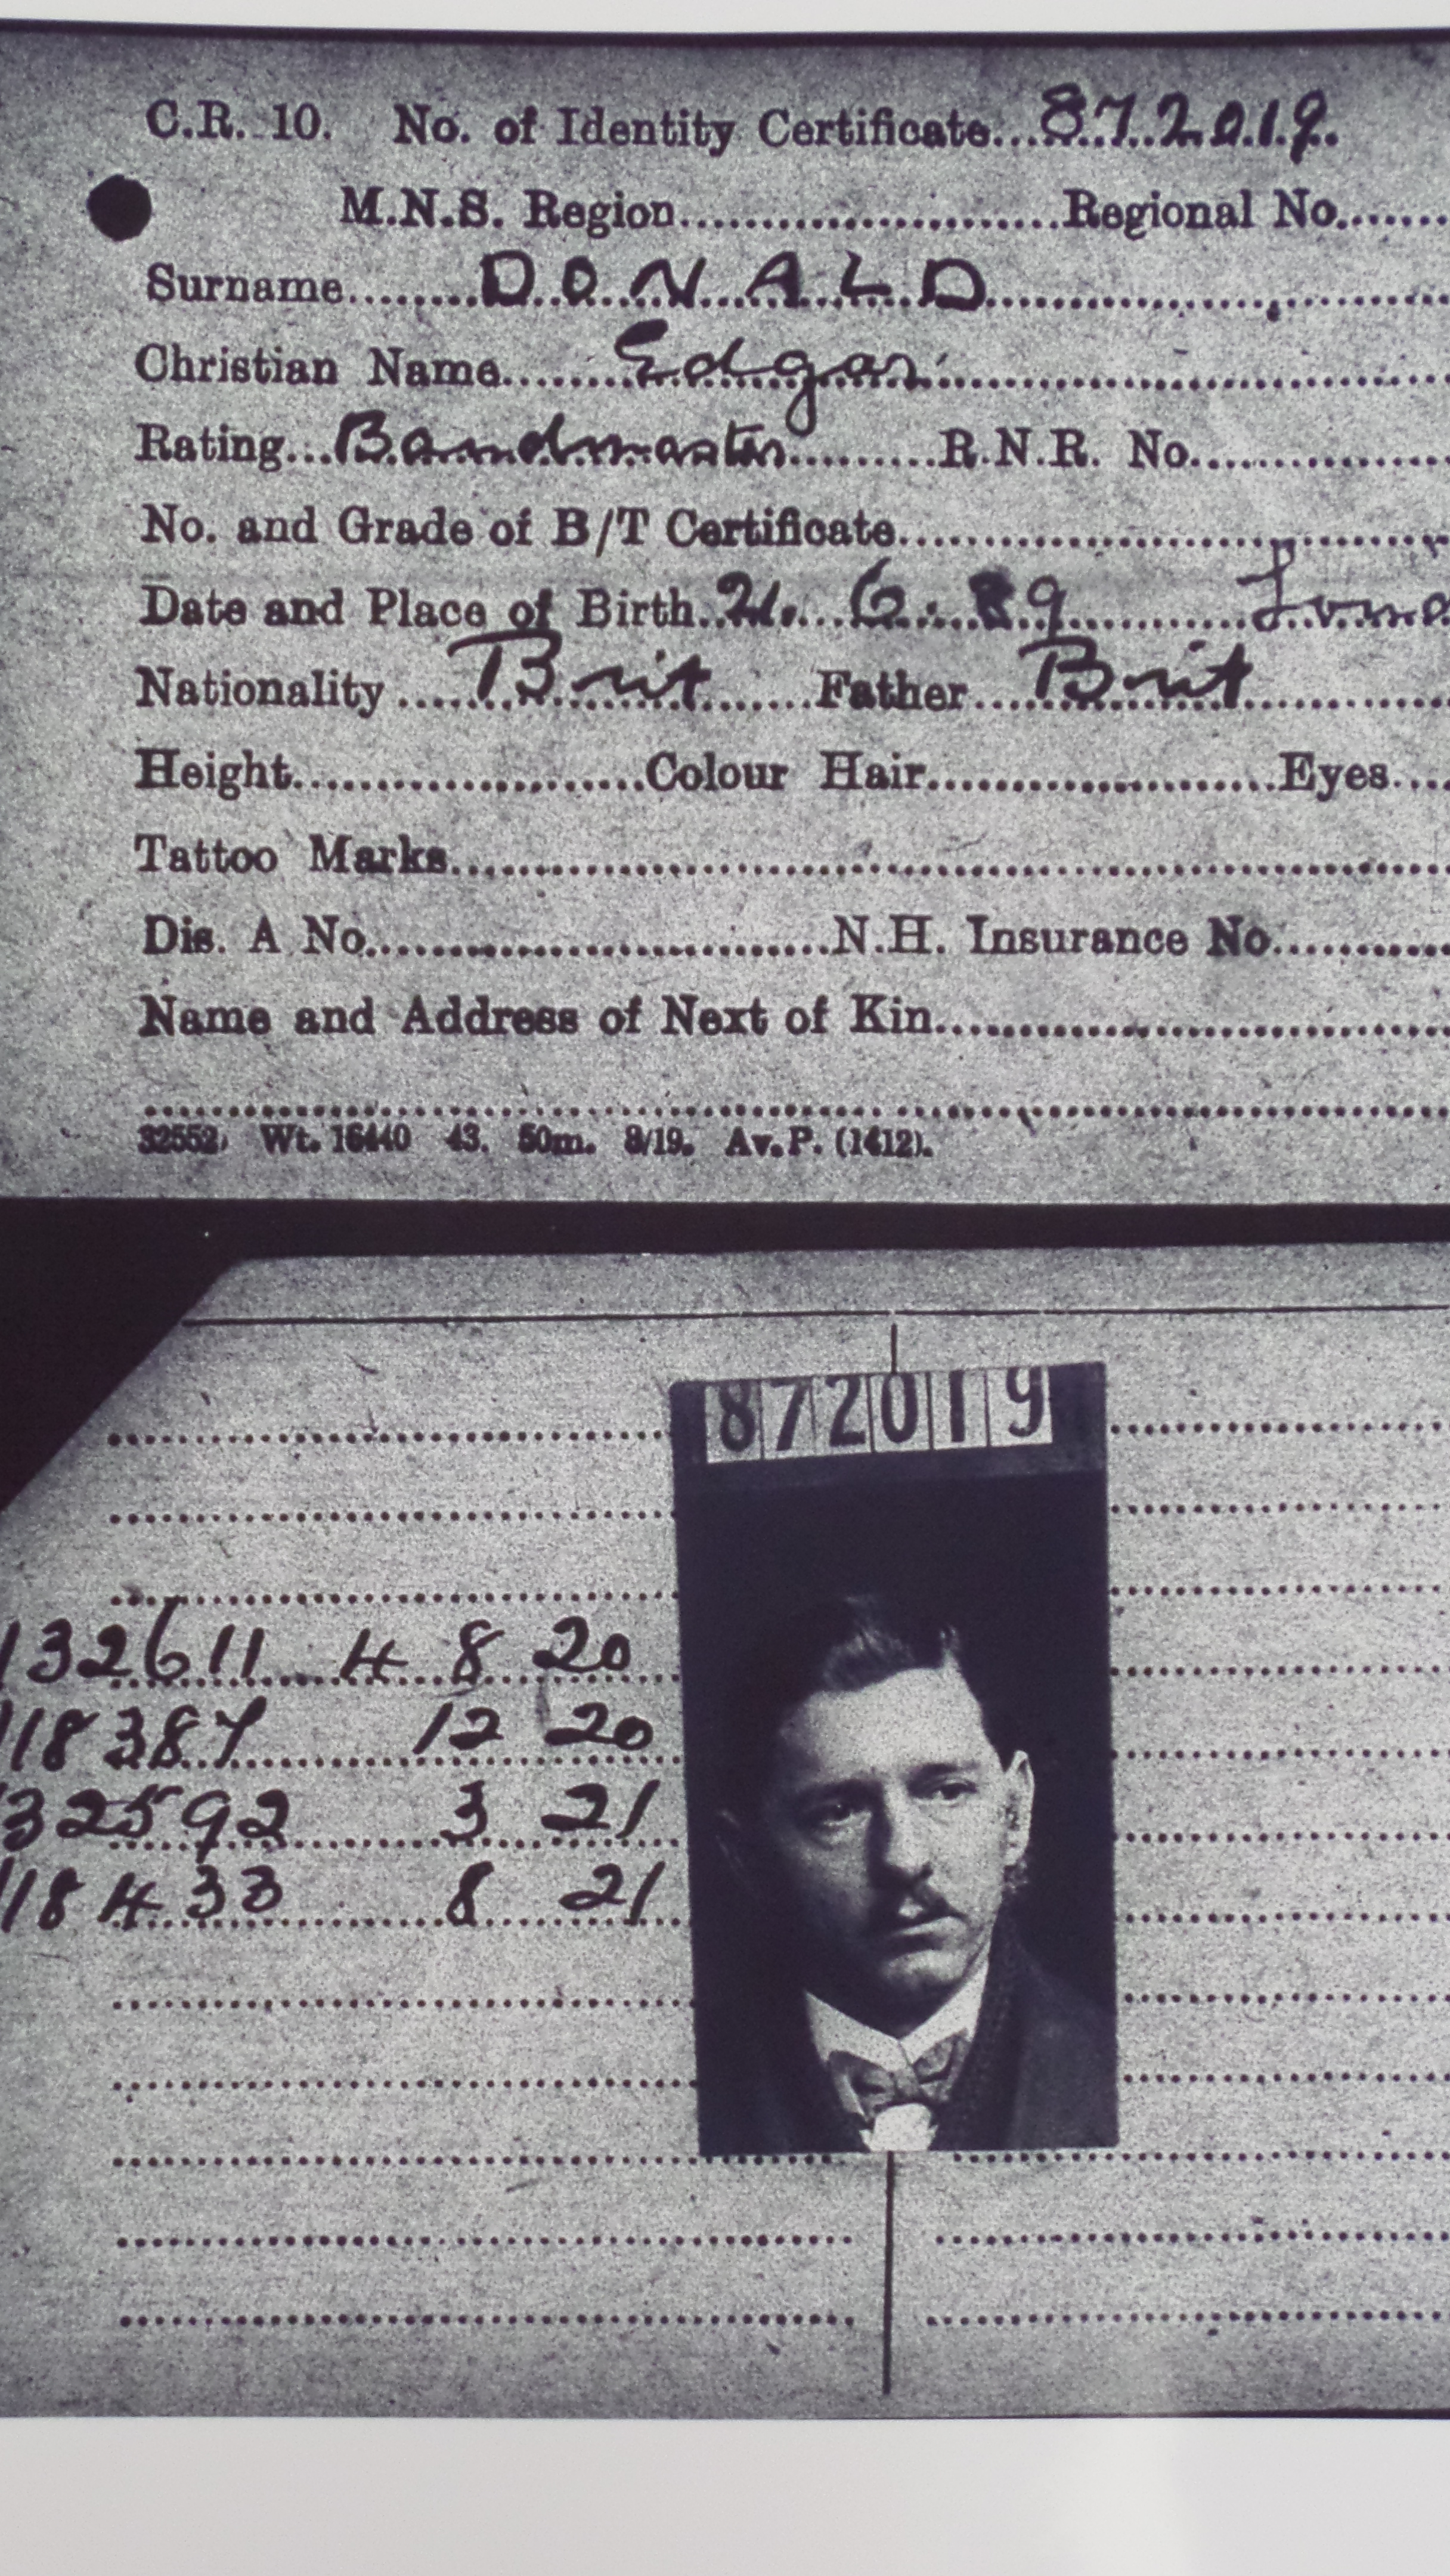 C.R. 10. No. of Identity Certificate...872019.
M.N.S. Region..............Regional No.......
Surname.........DONALD..............
Christian Name.........Edgar..............
Rating...Bandmaster.........R.N.R. No..........
No. and Grade of B/T Certificate..............
Date and Place of Birth..21...6..89...........
Nationality....Brit.......Father....Brit..........
Height..............Colour Hair..............Eyes....
Tattoo Marks..............
Dis. A No..............N.H. Insurance No..........
Name and Address of Next of Kin..............
32552. Wt. 16440 43. 50m. 8/19. Av. P. (1412).
872019
132611 4 8 20
118387 12 20
32592 3 21
118433 8 21